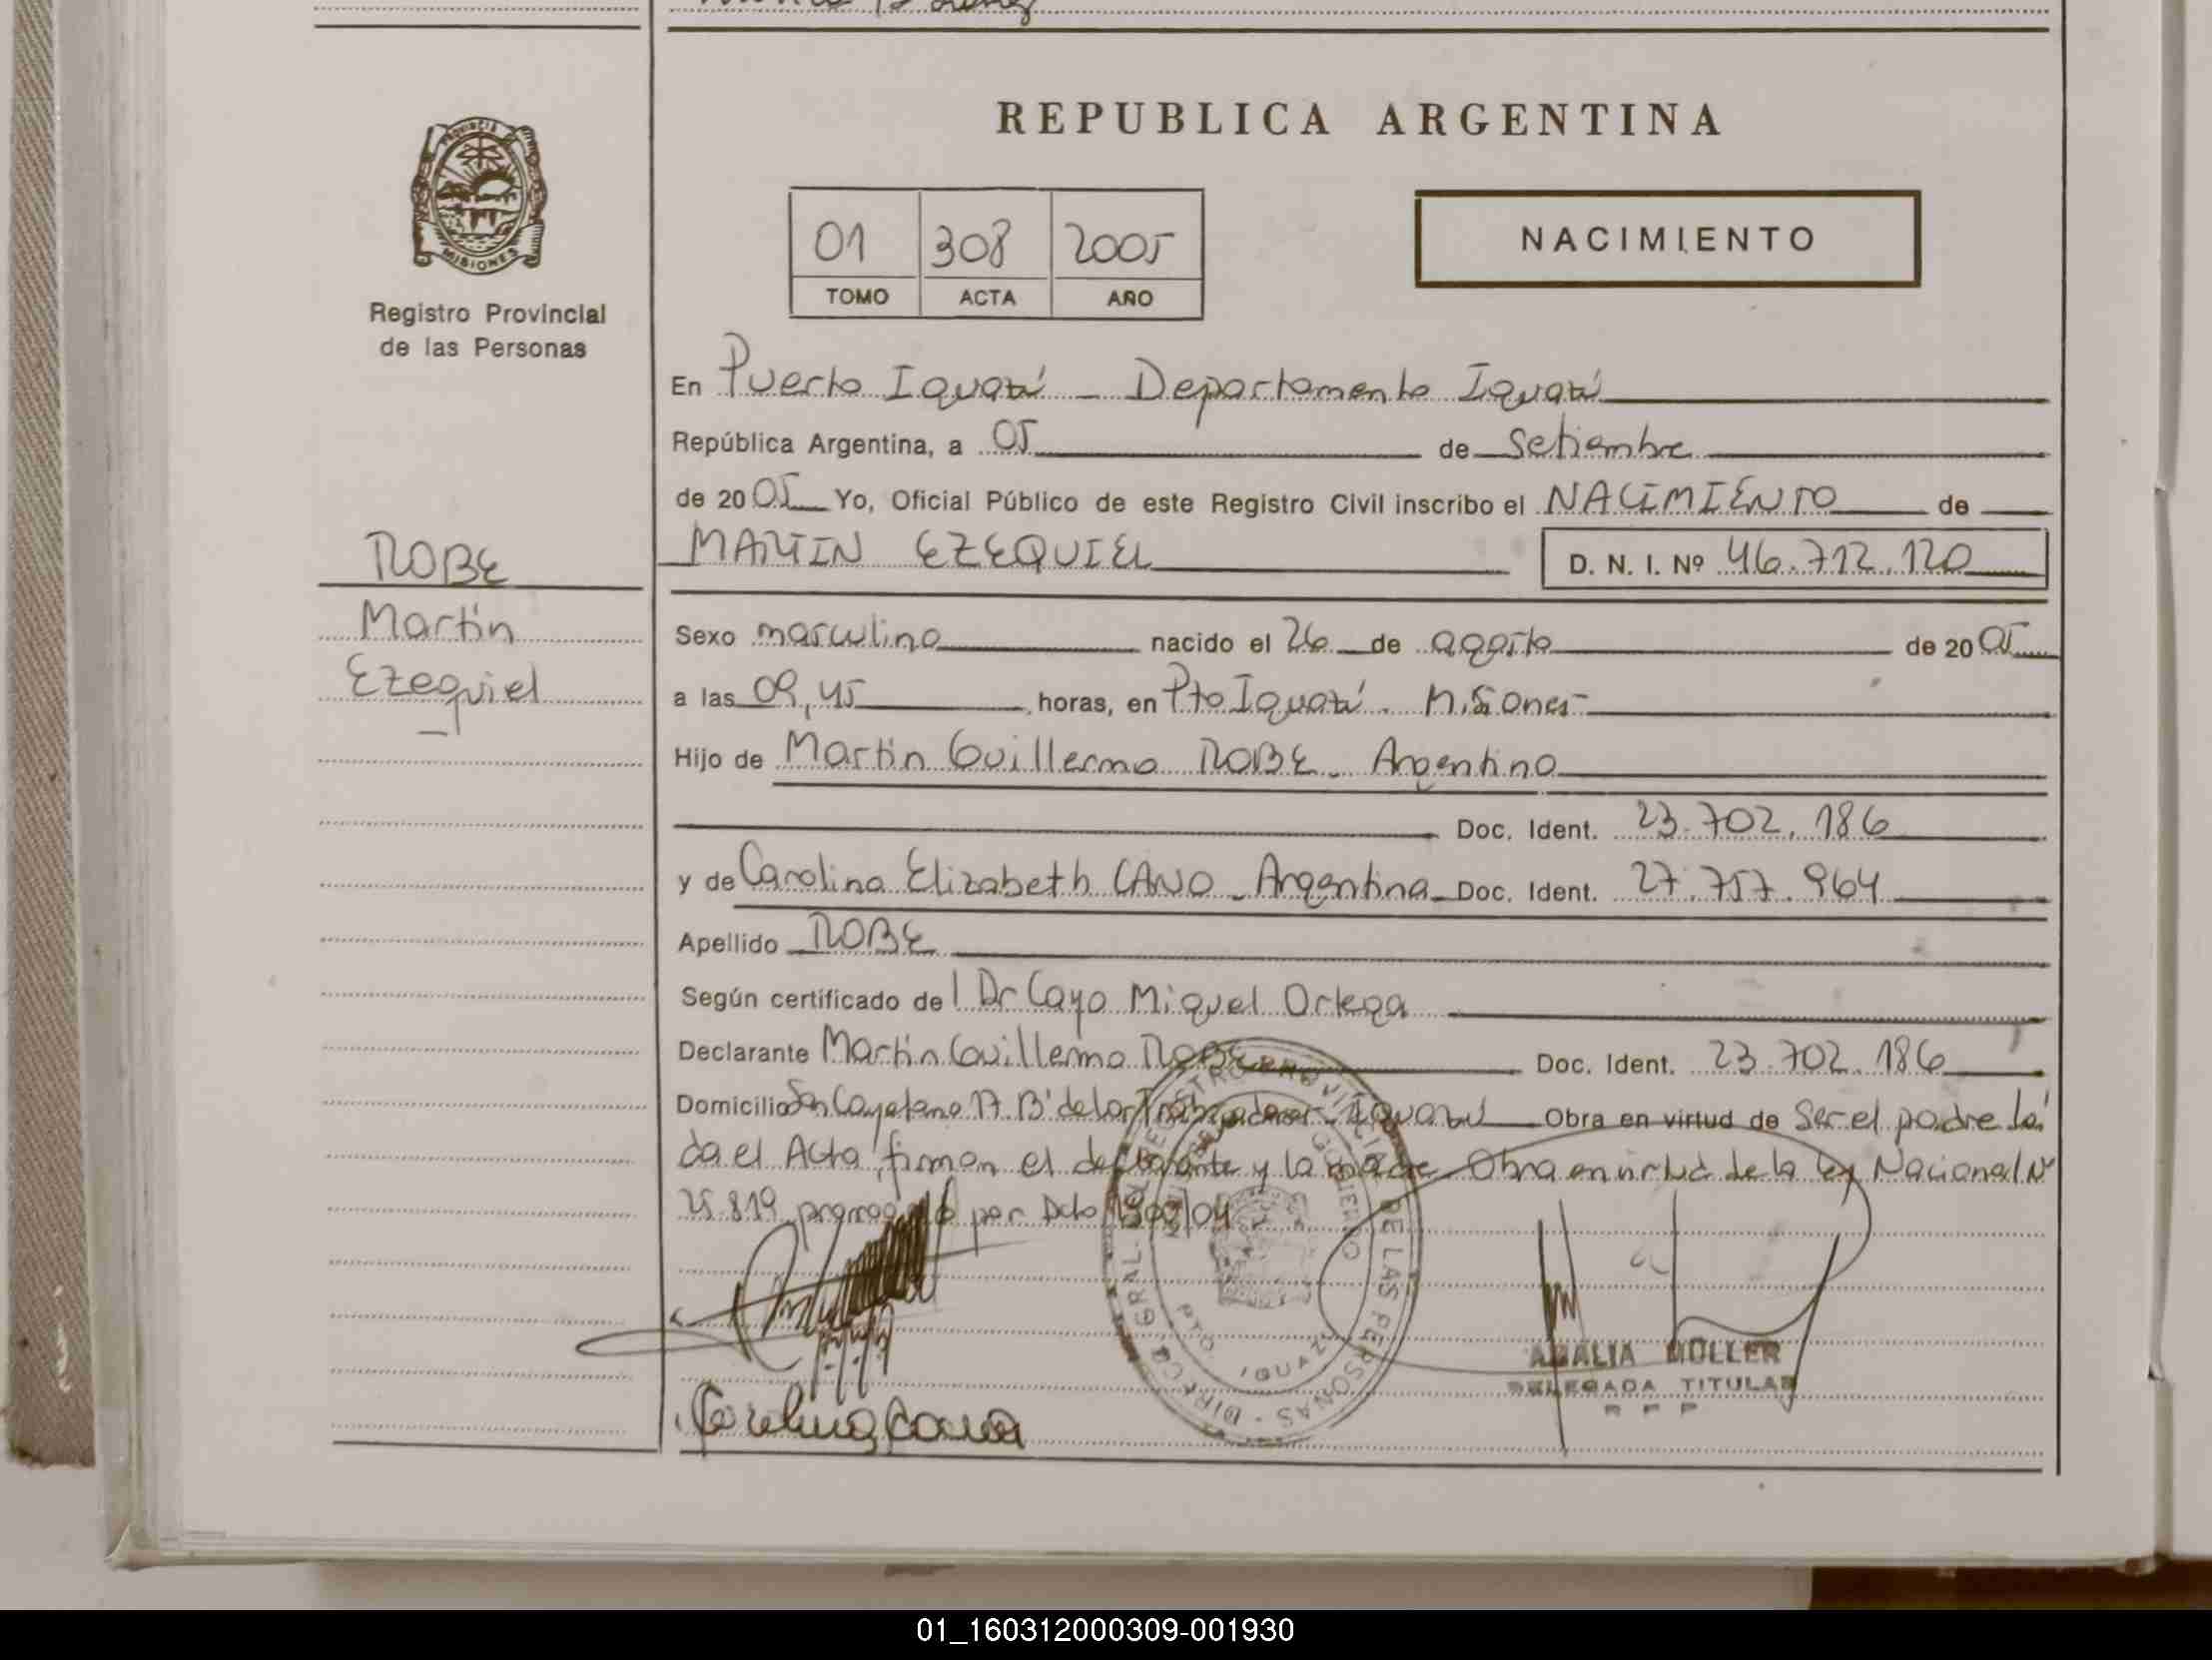 REPUBLICA ARGENTINA
PROVINCIA
MISIONES
Registro Provincial
de las Personas
01 308 2005
TOMO ACTA AÑO
NACIMIENTO
En Puerto Iguazú - Departamento Iguazú
República Argentina, a 05 de Setiembre
de 2005 Yo, Oficial Público de este Registro Civil inscribo el NACIMIENTO de
ROBE
MARTIN EZEQUIEL D. N. I. Nº 46.712.120
Martín
Ezequiel
Sexo masculino nacido el 26 de agosto de 2005
a las 09,45 horas, en Pto Iguazú. Misiones-
Hijo de Martín Guillermo ROBE - Argentino
Doc. Ident. 23.702.186
y de Carolina Elizabeth CANO - Argentina - Doc. Ident. 27.757.964
Apellido ROBE
Según certificado del Dr Cayo Miguel Ortega
Declarante Martín Guillermo ROBE Doc. Ident. 23.702.186
Domicilio San Cayetano 17 Bº de los Trabajadores - Iguazú Obra en virtud de Ser el padre leí
da el Acta firman el declarante y la madre Obra en virtud de la ley Nacional Nº
25.819 por Dcto
DIRECC. GRAL. REGISTRO PROVINCIAL DE LAS PERSONAS
GOBIERNO
PTO. IGUAZU
Carolina Cano
AMALIA MOLLER
DELEGADA TITULAR
R P P
01_160312000309-001930